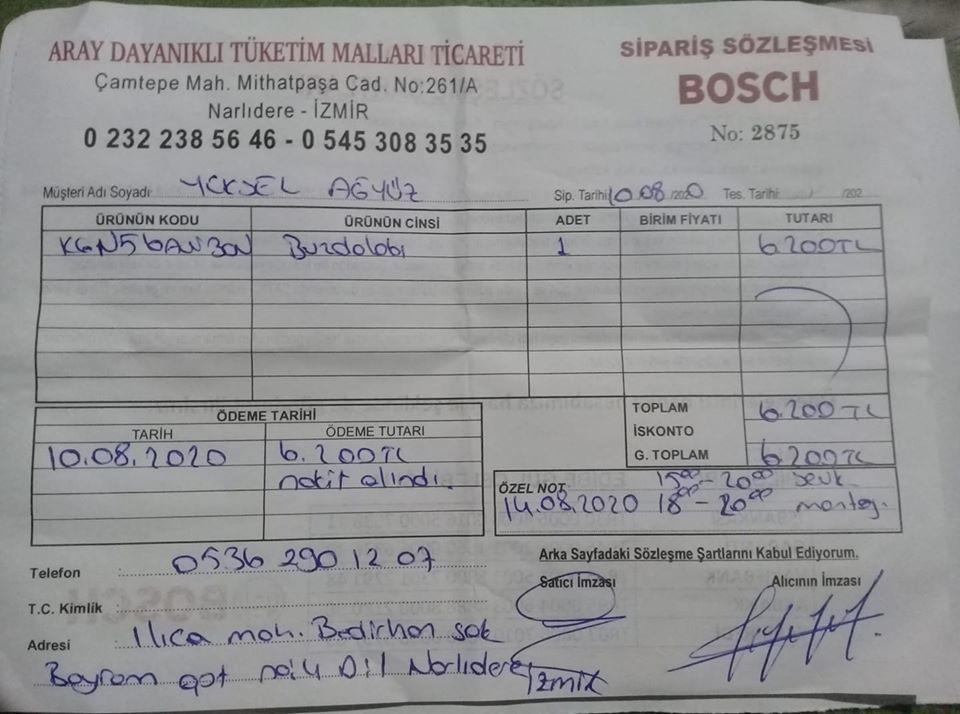 ARAY DAYANIKLI TÜKETİM MALLARI TİCARETİ
Çamtepe Mah. Mithatpaşa Cad. No:261/A
Narlıdere - İZMİR
0 232 238 56 46 - 0 545 308 35 35
SİPARİŞ SÖZLEŞMESİ
BOSCH
No: 2875
Müşteri Adı Soyadı: YÜKSEL AĞYÜZ
Sip. Tarihi 10.08/2020 Tes. Tarihi: / /202
ÜRÜNÜN KODU ÜRÜNÜN CİNSİ ADET BİRİM FİYATI TUTARI
KGN56AN30N Buzdolabı 1 6.200TL
TOPLAM 6.200TL
İSKONTO
G. TOPLAM 6.200TL
ÖDEME TARİHİ
TARİH ÖDEME TUTARI
10.08.2020 6.200TL
nakit alındı.
ÖZEL NOT 15:00-20:00 sevk
14.08.2020 18:00-20:00 montaj.
Telefon : 0536 290 12 07
T.C. Kimlik :
Adresi : Ilıca mah. Bedirhan sok
Bayram apt no:4 D:1 Narlıdere
İzmir
Arka Sayfadaki Sözleşme Şartlarını Kabul Ediyorum.
Satıcı İmzası Alıcının İmzası